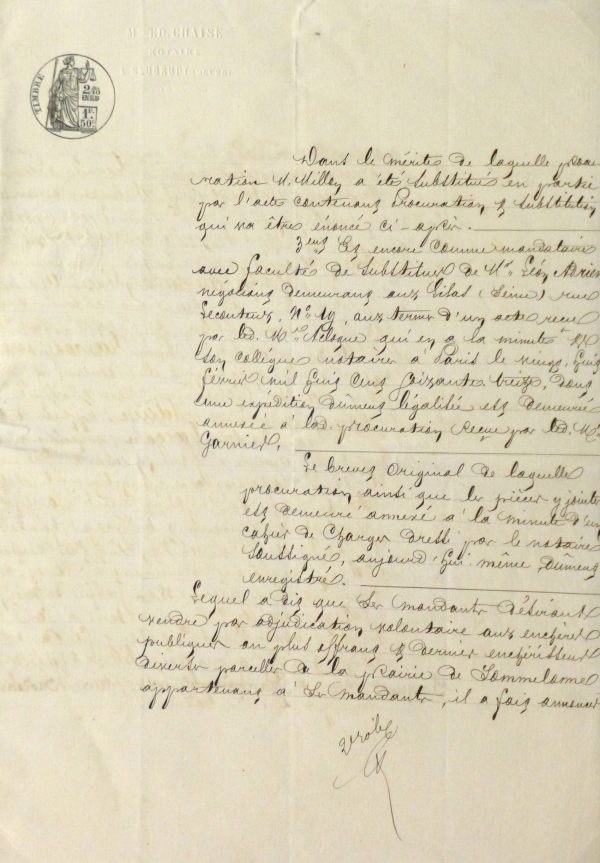 Mᵉ ED. CHAISE
NOTAIRE
TIMBRE
2/10
EN SUS
1F.
50c.
Dans le mérite de laquelle procu-
ration M. Millon a été substitué en partie
par l'acte contenant Procuration & substitution
qui va être énoncé ci-après.
3ent Et encore comme mandataire
avec faculté de substituer de Mr. Léon Adrien
négociant demeurant aux Lilas (Seine) rue
No 19, aux termes d'un acte reçu
par led. Me qui en a la minute & Sr
son collègue notaire à Paris le vingt-huit
février mil huit cent soixante treize, dont
une expédition dûment légalisée est demeurée
annexée à lad. procuration reçue par led. Me
Garnier.
Le brevet original de laquelle
procuration ainsi que les pièces y jointes
est demeuré annexé à la minute d'un
cahier de charges dressé par le notaire
soussigné, aujourd'hui même, dûment
enregistré.
Lequel a dit que ses mandants désirant
vendre par adjudication volontaire aux enchères
publiques au plus offrant & dernier enchérisseur
diverses parcelles de la prairie de Sommelonne
appartenant à ses mandants, il a fait annoncer